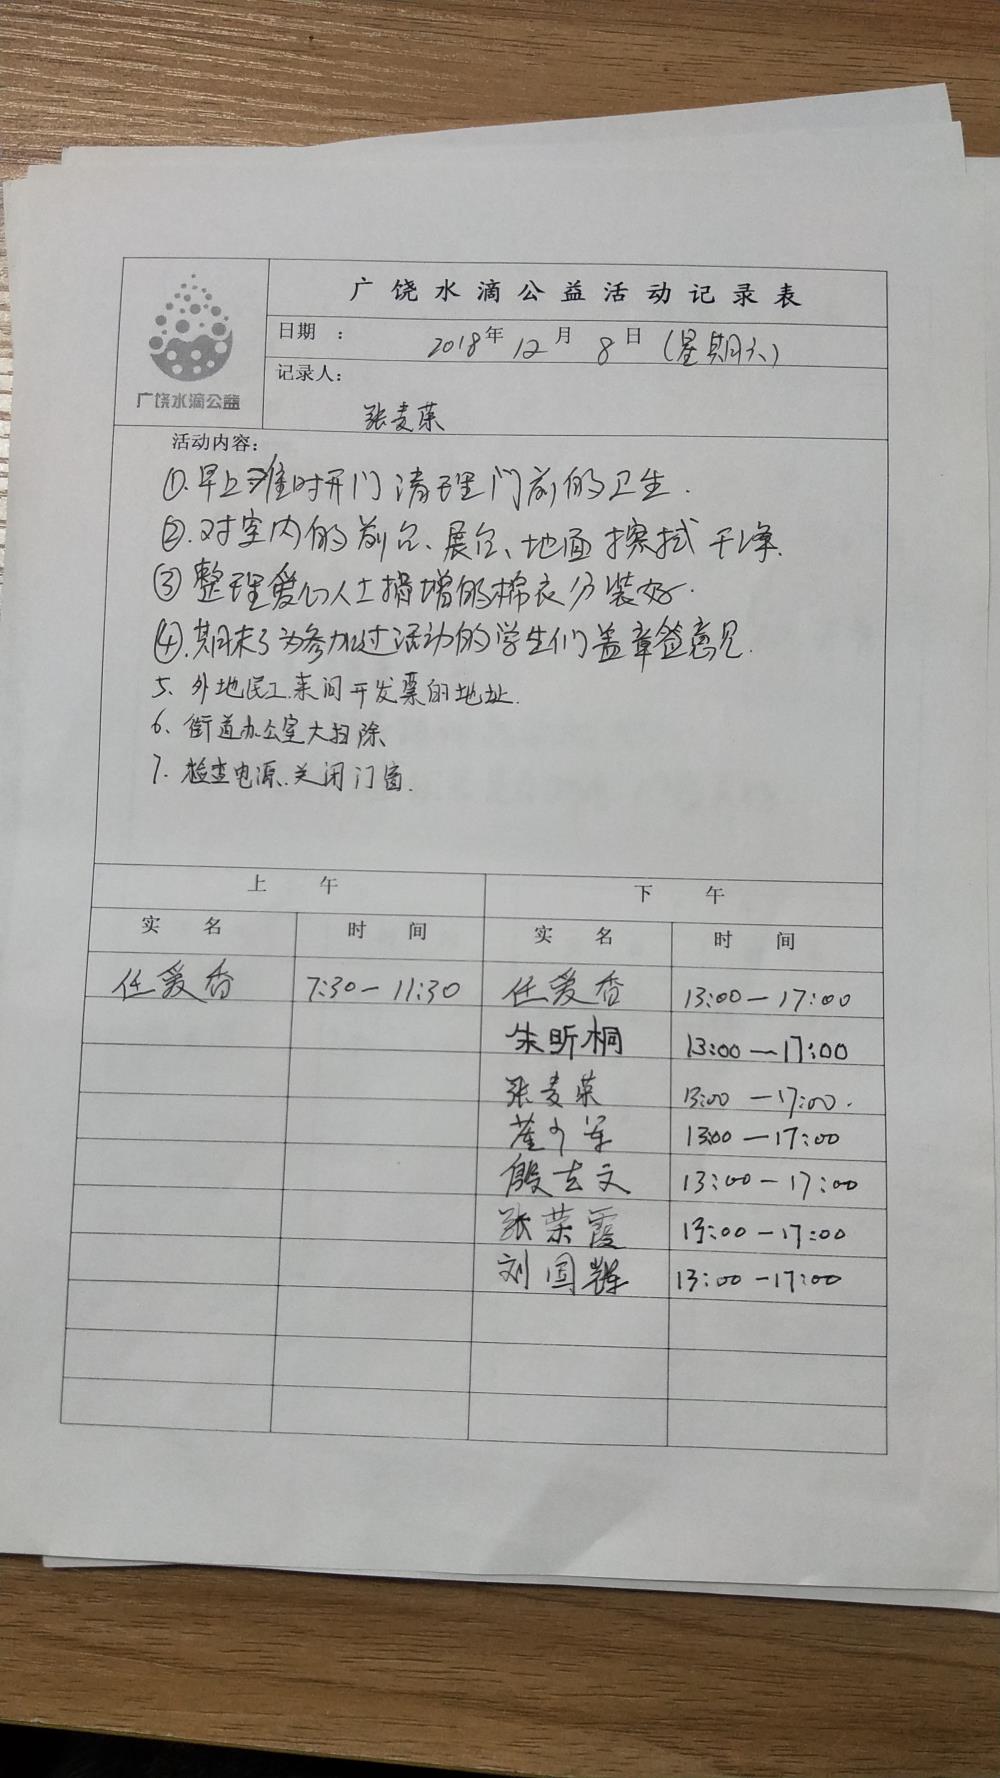 广饶水滴公益活动记录表
日期 : 2018年12月8日(星期六)
广饶水滴公益
记录人:
张麦荣
活动内容:
①.早上准时开门清理门前的卫生.
②.对室内的前台、展台、地面擦拭干净.
③整理爱心人士捐增的棉衣分装好.
④.期末了为参加过活动的学生们盖章签意见.
5、外地民工来问开发票的地址.
6、街道办公室大扫除
7.检查电源.关闭门窗.
上 午 下 午
实 名 时 间 实 名 时 间
任爱香 7:30-11:30 任爱香 13:00-17:00
朱昕桐 13:00-17:00
张麦荣 13:00-17:00.
13:00-17:00
殷吉文 13:00-17:00
张荣霞 13:00-17:00
刘国辉 13:00-17:00